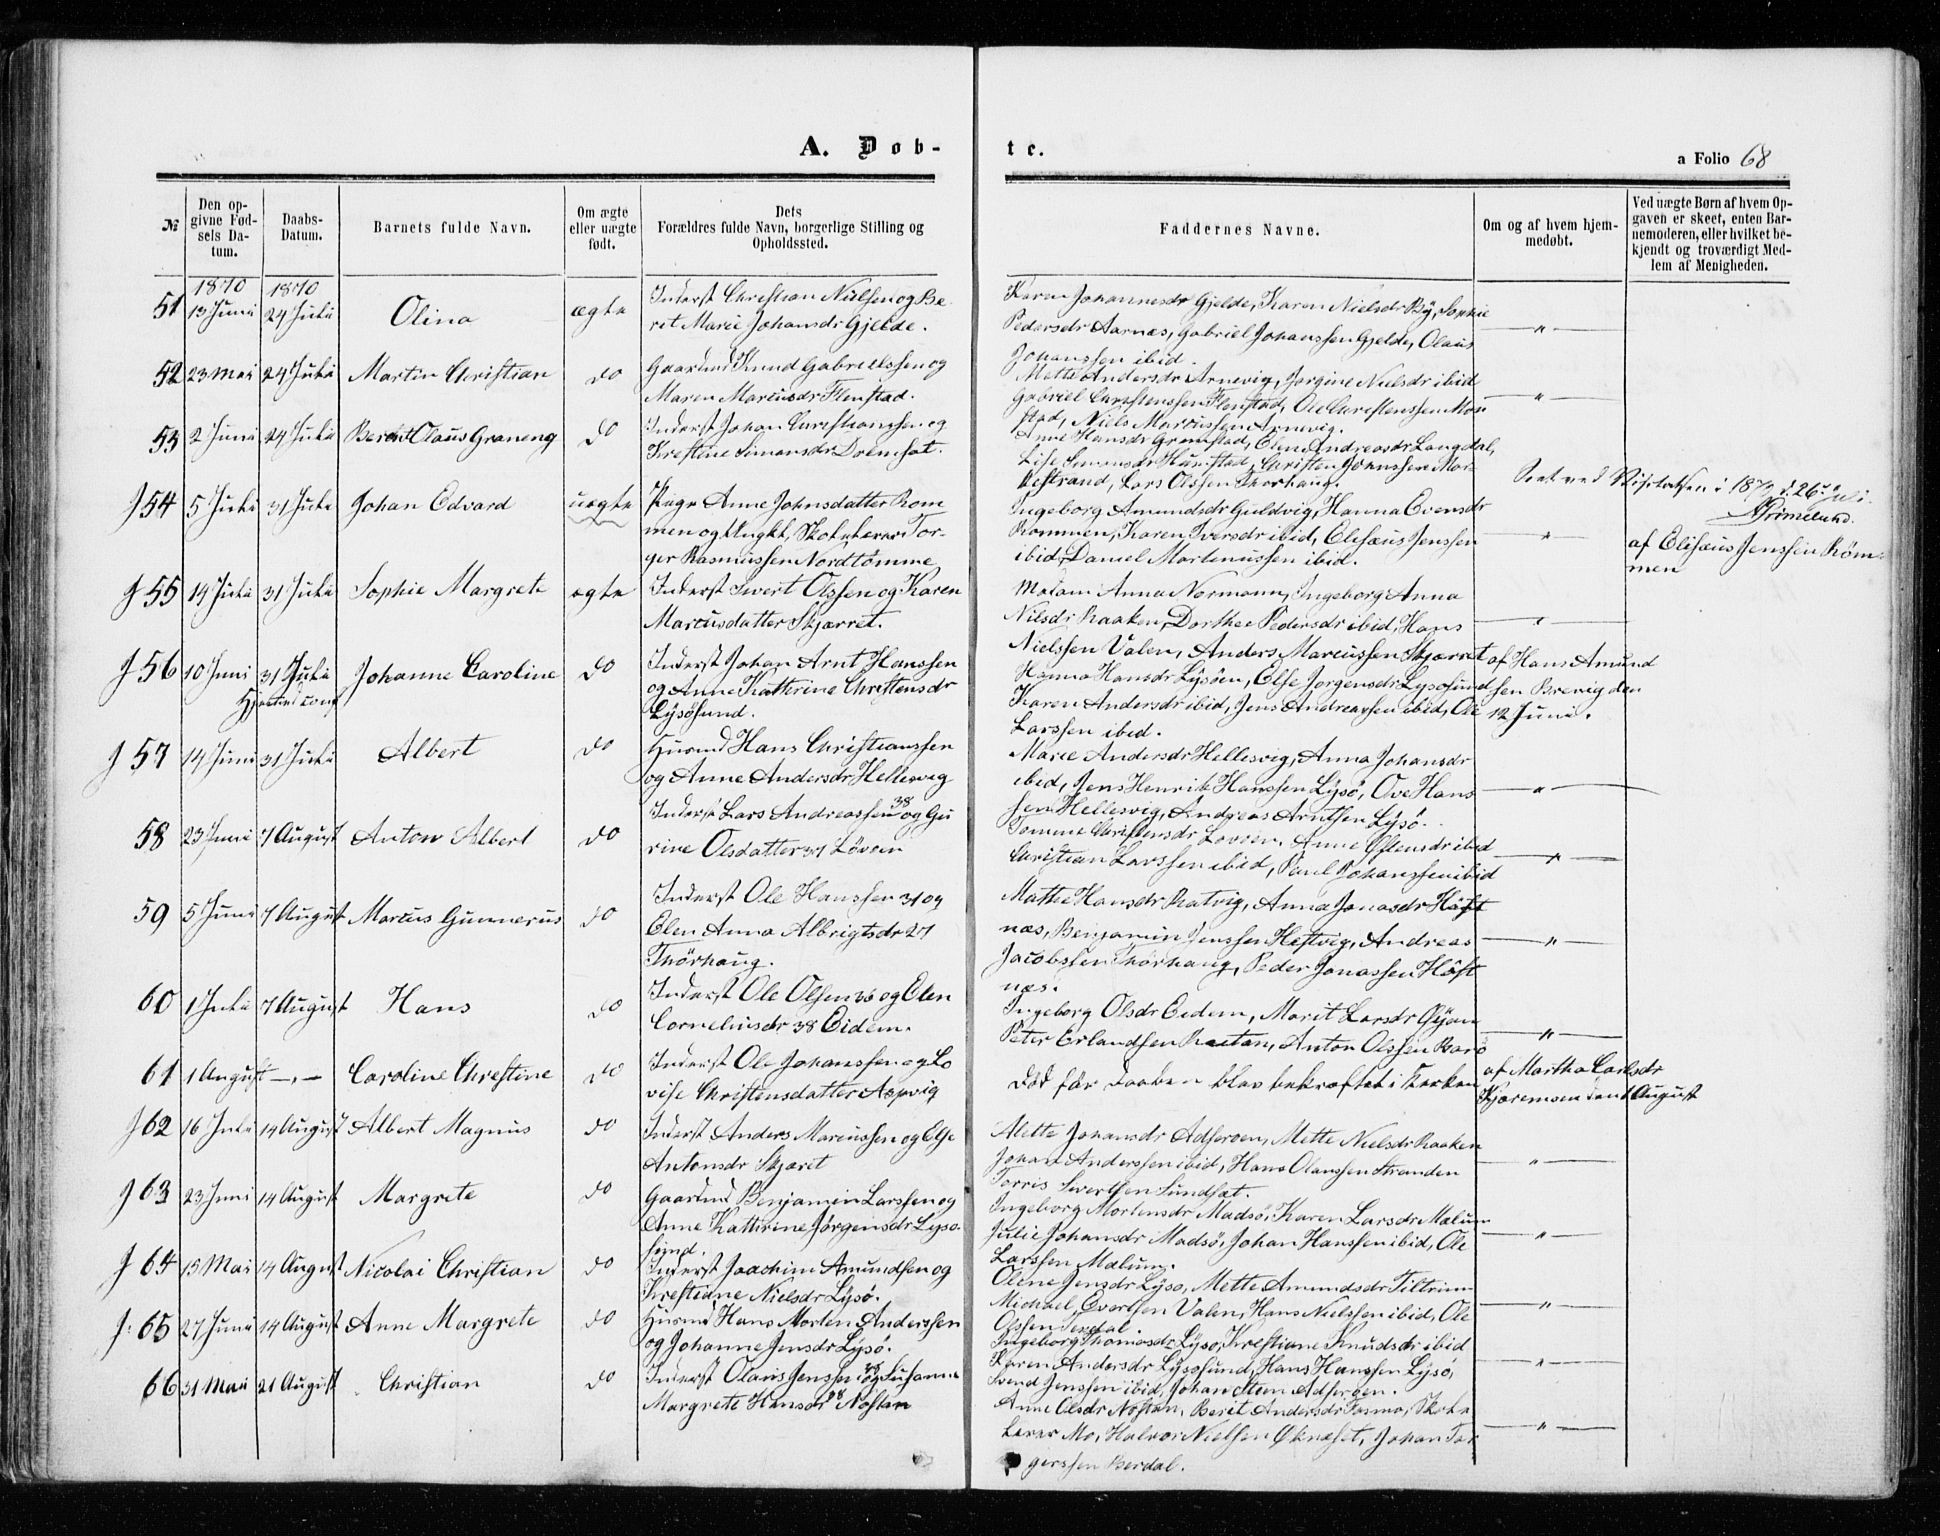 A. Døb-
te.
a Folio 68
№
Den op-
givne Fød-
sels Da-
tum.
Daabs-
Datum.
Barnets fulde Navn.
Om ægte
eller uægte
født.
Dets
Forældres fulde Navn, borgerlige Stilling og
Opholdssted.
Faddernes Navne.
Om og af hvem hjem-
medøbt.
Ved uægte Børn af hvem Op-
gaven er skeet, enten Bar-
nemoderen, eller hvilket be-
kjendt og troværdigt Med-
lem af Menigheden.
1870
1870
51
13 Juni
24 Juli
Olina
ægte
Inderst Christian Nielsen og Be-
ret Marie Johansdr Gjelde.
Karen Johannesdr Gjelde, Karen Nielsdr By, Sophie
Pedersdr Aarnæs, Gabriel Johanssen Gjelde, Olaus
Johanssen ibid.
52
23 Mai
24 Juli
Martin Christian
do
Gaardmd Knud Gabrielssen og
Maren Marcusdr Flenstad.
Mette Andersdr Arnevig, Jorgine Nielsdr ibid
Gabriel Christenssen Flenstad, Ole Christenssen Mon
stad, Niels Marcussen Arnevig.
53
2 Juni
24 Juli
Berent Olaus Graneng
do
Inderst Johan Christianssen og
Kristine Simonsdr Dolmsæt.
Anne Hansdr Gromstad, Elen Andreasdr Langdal,
Lise Simonsdr Humstad, Christen Johnssen Mor-
kestrand, Lars Olssen Thorhaug.
Seet ved Visitatsen i 1873 d. 26 Juli.
Grimelund.
J 54
5 Juli
31 Juli
Johan Edvard
uægte
Pige Anne Johnsdatter Rom
men og Ungkl, Skolelærer Tor-
ger Rasmussen Nordtømme
Ingeborg Amundsdr Guldvig, Hanna Evensdr
Rommen, Karen Iversdr ibid, Elisæus Jenssen
ibid, Daniel Mortenussen ibid.
af Elisæus Jenssen Röm-
men
J 55
14 Juli
31 Juli
Sophie Margrete
ægte
Inderst Sivert Olssen og Karen
Marcusdatter Skjærret.
Madam Anna Normann, Ingeborg Anna
Nilsdr Raaken, Dorthee Pedersdr ibid, Hans
Nielssen Valen, Anders Marcussen Skjærret
J 56
10 Juni
31 Juli
Johanne Caroline
do
Inderst Johan Arnt Hanssen
og Anne Katherine Christensdr
Lysösund.
Hanna Hansdr Lysöen, Else Jorgensdr Lysosund
Karen Andersdr ibid, Jens Andreassen ibid, Ole
Larssen ibid.
af Hans Amund
sen Brevig den
12 Juni.
J 57
14 Juni
31 Juli
Albert
do
Husmd Hans Christianssen
og Anne Andersdr Hellesvig
Marie Andersdr Hellesvig, Anna Johansdr
ibid, Jens Henrik Hanssen Lysö, Ove Hans
sen Hellesvig, Andreas Arntsen Lysö.
58
23 Juni
7 August
Anton Albert
do
Inderst Lars Andreassen 38 og Gu
rine Olsdatter 37 Lövöen
Tomine Christensdr Lovoen, Anne Ostensdr ibid
Christian Larssen ibid, Paul Johanssen ibid
59
5 Juni
7 August
Marcus Gunnerus
do
Inderst Ole Hanssen 31 og
Elen Anna Albrigtsdr 27
Thörhaug.
Mathe Hansdr Ratvig, Anna Jonasdr Höft
næs, Benjamin Jenssen Hestvig, Andreas
Jacobssen Thörhaug, Peder Jonassen Höft
næs.
60
1 Juli
7 August
Hans
do
Inderst Ole Olsen 36 og Elen
Corneliusdr 38 Eidem.
Ingeborg Olsdr Eidem, Marit Larsdr Öyan
Peter Erlandsen Raetan, Anton Olssen Barö
61
1 August
Caroline Christine
do
Inderst Ole Johanssen og Lo
vise Christensdatter Aspvig
död för Daaben blev bekræftet i Kirken
af Martha Carlsdr
Kjöremsen den 1 August
J 62
16 Juli
14 August
Albert Magnus
do
Inderst Anders Marcussen og Else
Antonsdr Skjæret
Alette Johansdr Adseroen, Mette Nielsdr Raaken
Johan Anderssen ibid, Hans Olaussen Stranden
Torris Sivertsen Sundsæt.
J 63
23 Juni
14 August
Margrete
do
Gaardmd Benjamin Larssen og
Anne Kathrine Jörgensdr Lyso-
sund.
Ingeborg Mortensdr Madsö, Karen Larsdr Mælum
Julie Johansdr Madsö, Johan Hanssen ibid, Ole
Larssen Mælum.
J 64
15 Mai
14 August
Nicolai Christian
do
Inderst Joachim Amundsen og
Kristiane Nielsdr Lysö.
Oline Jensdr Lyso, Mette Amundsdr Tiltrum
Michael Evertsen Valen, Hans Nielssen ibid, Ole
J. 65
27 Juni
14 August
Anne Margrete
do
Husmd Hans Morten Anderssen
og Johanne Jensdr Lysö.
Ingeborg Thomasdr Lyso, Kristiane Knudsdr ibid
Karen Andersdr Lysosund, Hans Hanssen Lysö,
Svend Jenssen ibid, Johan Steen Adseroen.
66
31 Mai
21 August
Christian
do
Inderst Olaus Jenssen 38 og Susanne
Margrete Hansdr 28 Nöstan
Anne Olsdr Nostan, Berit Andersdr Tosmo, Skole
lærer Mo, Halvor Nielsen Öknæset, Johan Tor
gerssen Berdal.